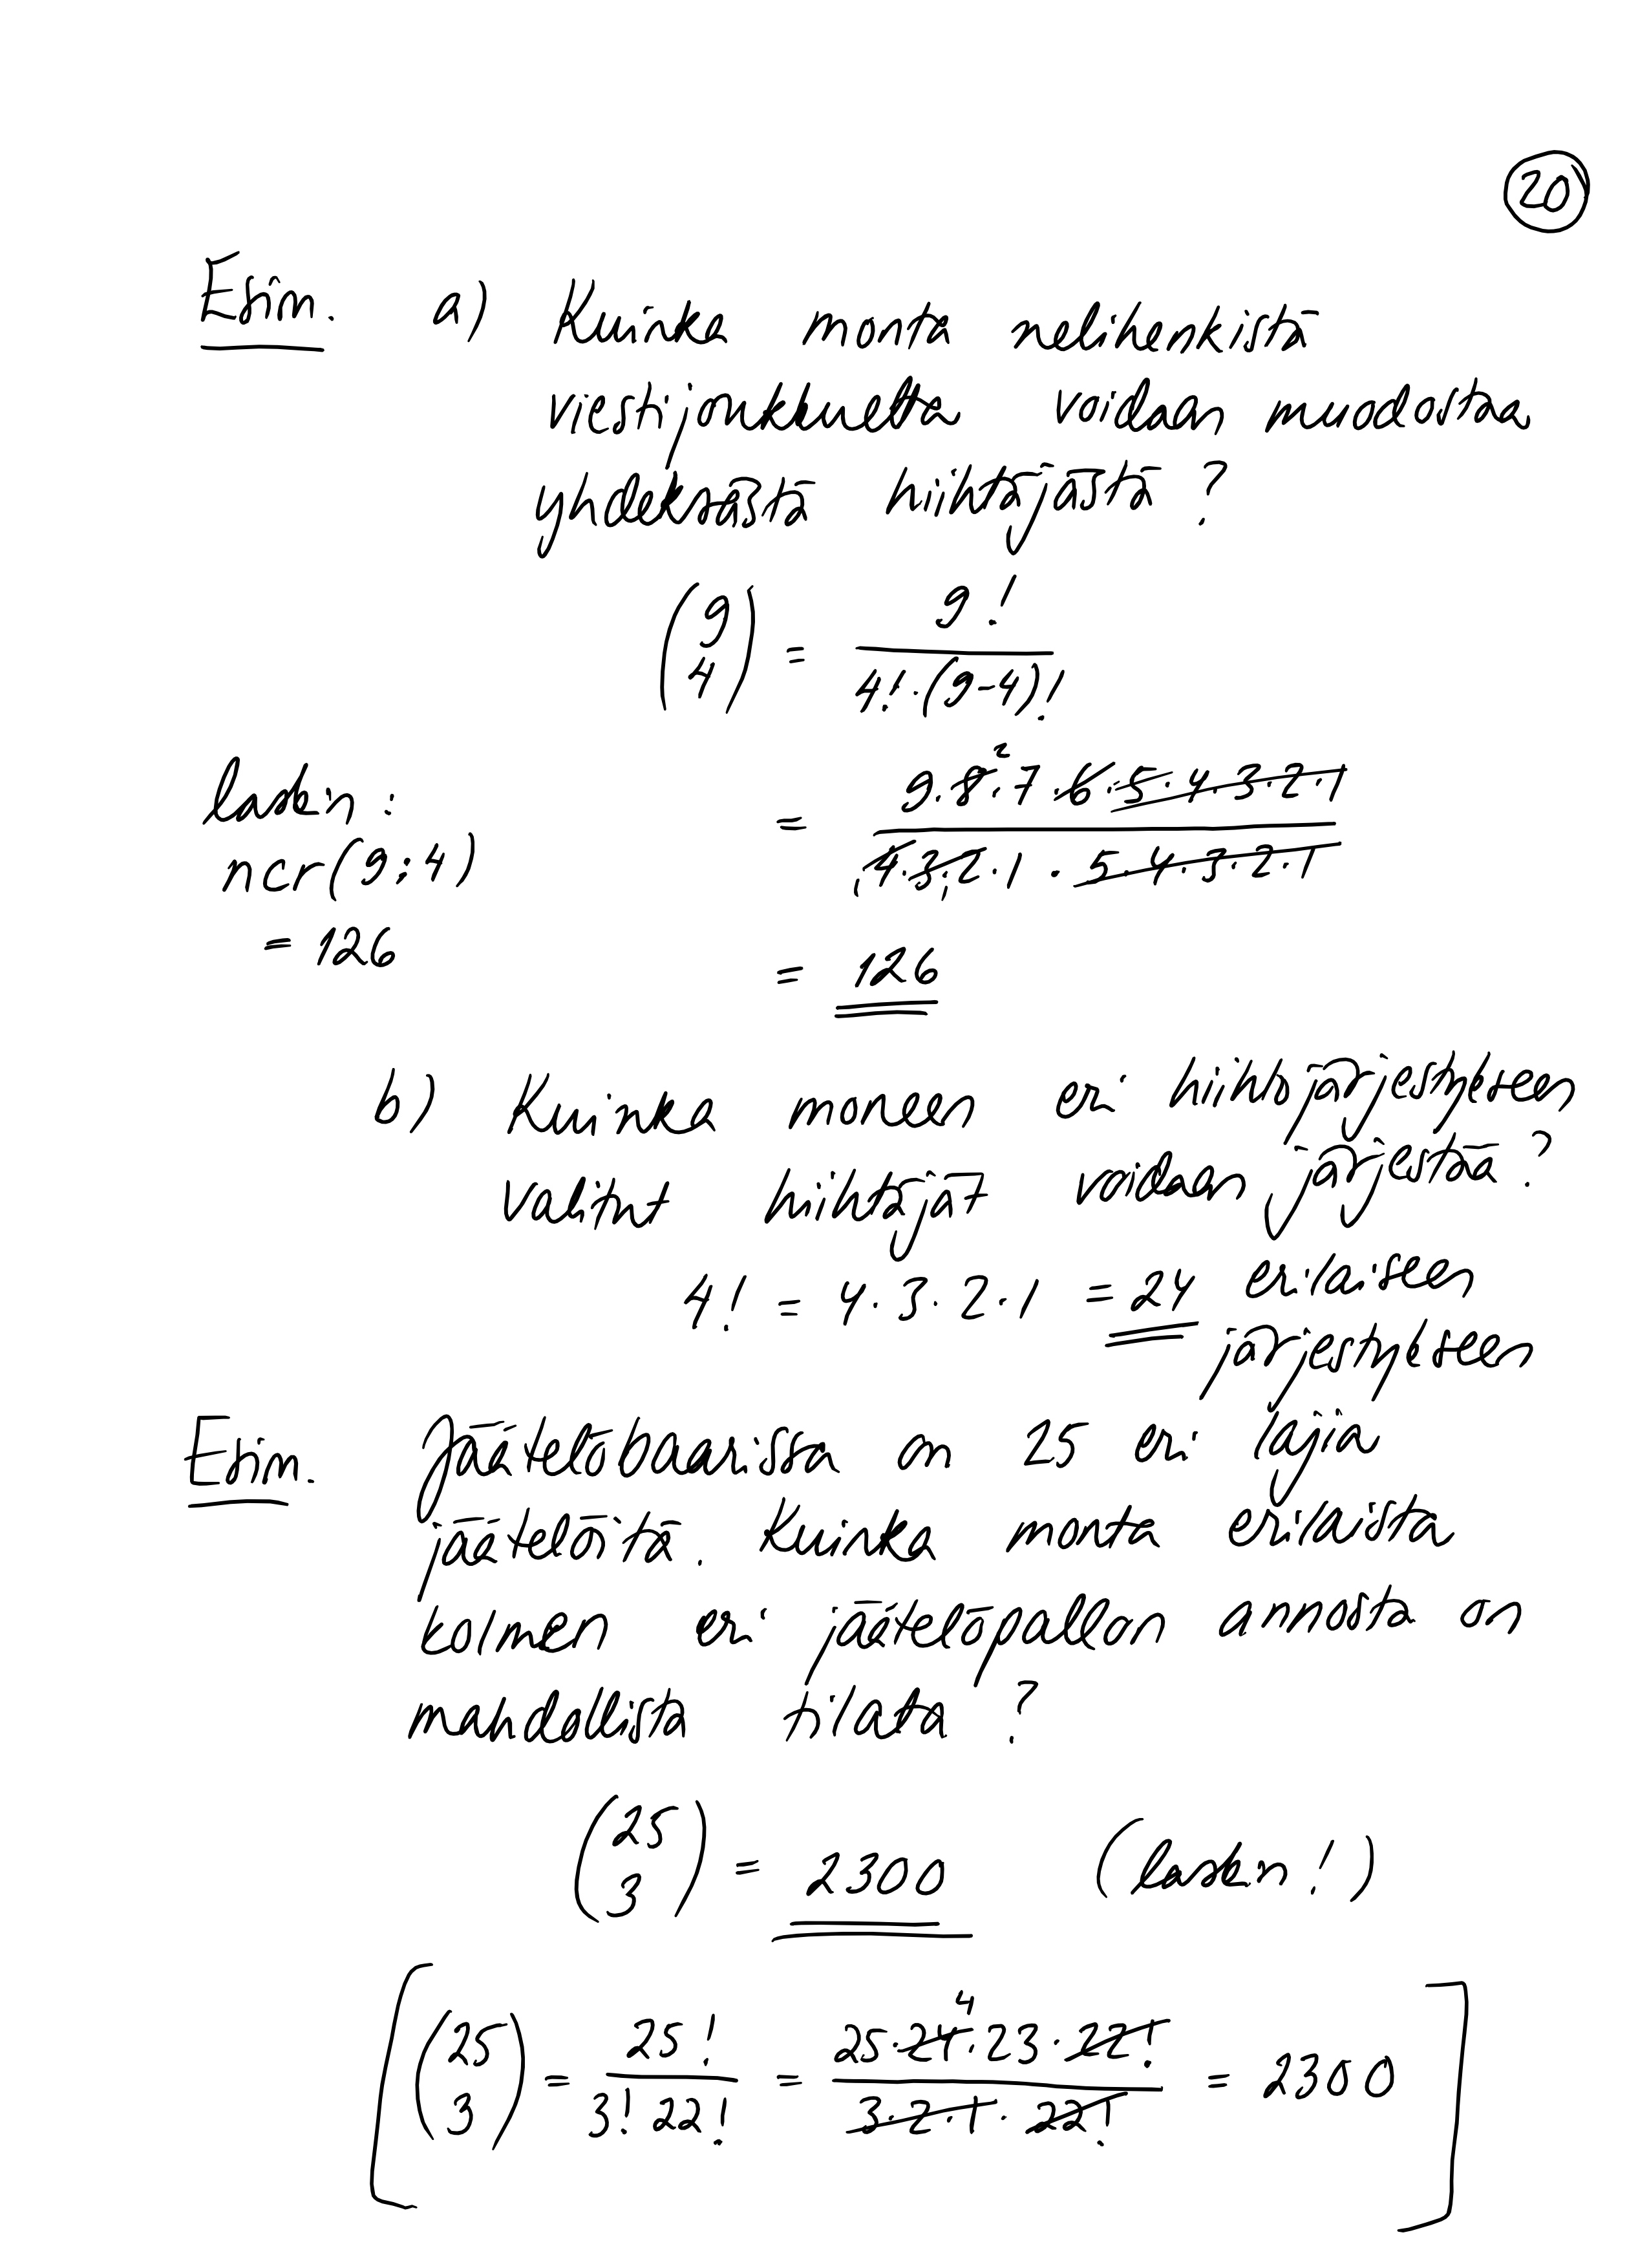 20
Esim. a) Kuinka monta nelihenkistä
viestijoukkuetta voidaan muodostaa
yhdeksästä hiihtäjästä ?
(9 4) = 9! / 4!·(9-4)!
laskin :
ncr(9;4)
= 126
= 9·8·7·6·5·4·3·2·1 / 4·3·2·1 · 5·4·3·2·1
= 126
b) Kuinka moneen eri hiihtojärjestykseen
valitut hiihtäjät voidaan järjestää ?
4! = 4·3·2·1 = 24 erilaiseen
järjestykseen
Esim. Jäätelöbaarissa on 25 eri lajia
jäätelöitä. Kuinka monta erilaista
kolmen eri jäätelöpallon annosta on
mahdollista tilata ?
(25 3) = 2300 (laskin!)
[(25 3) = 25! / 3! 22! = 25·24·23·22! / 3·2·1·22! = 2300]